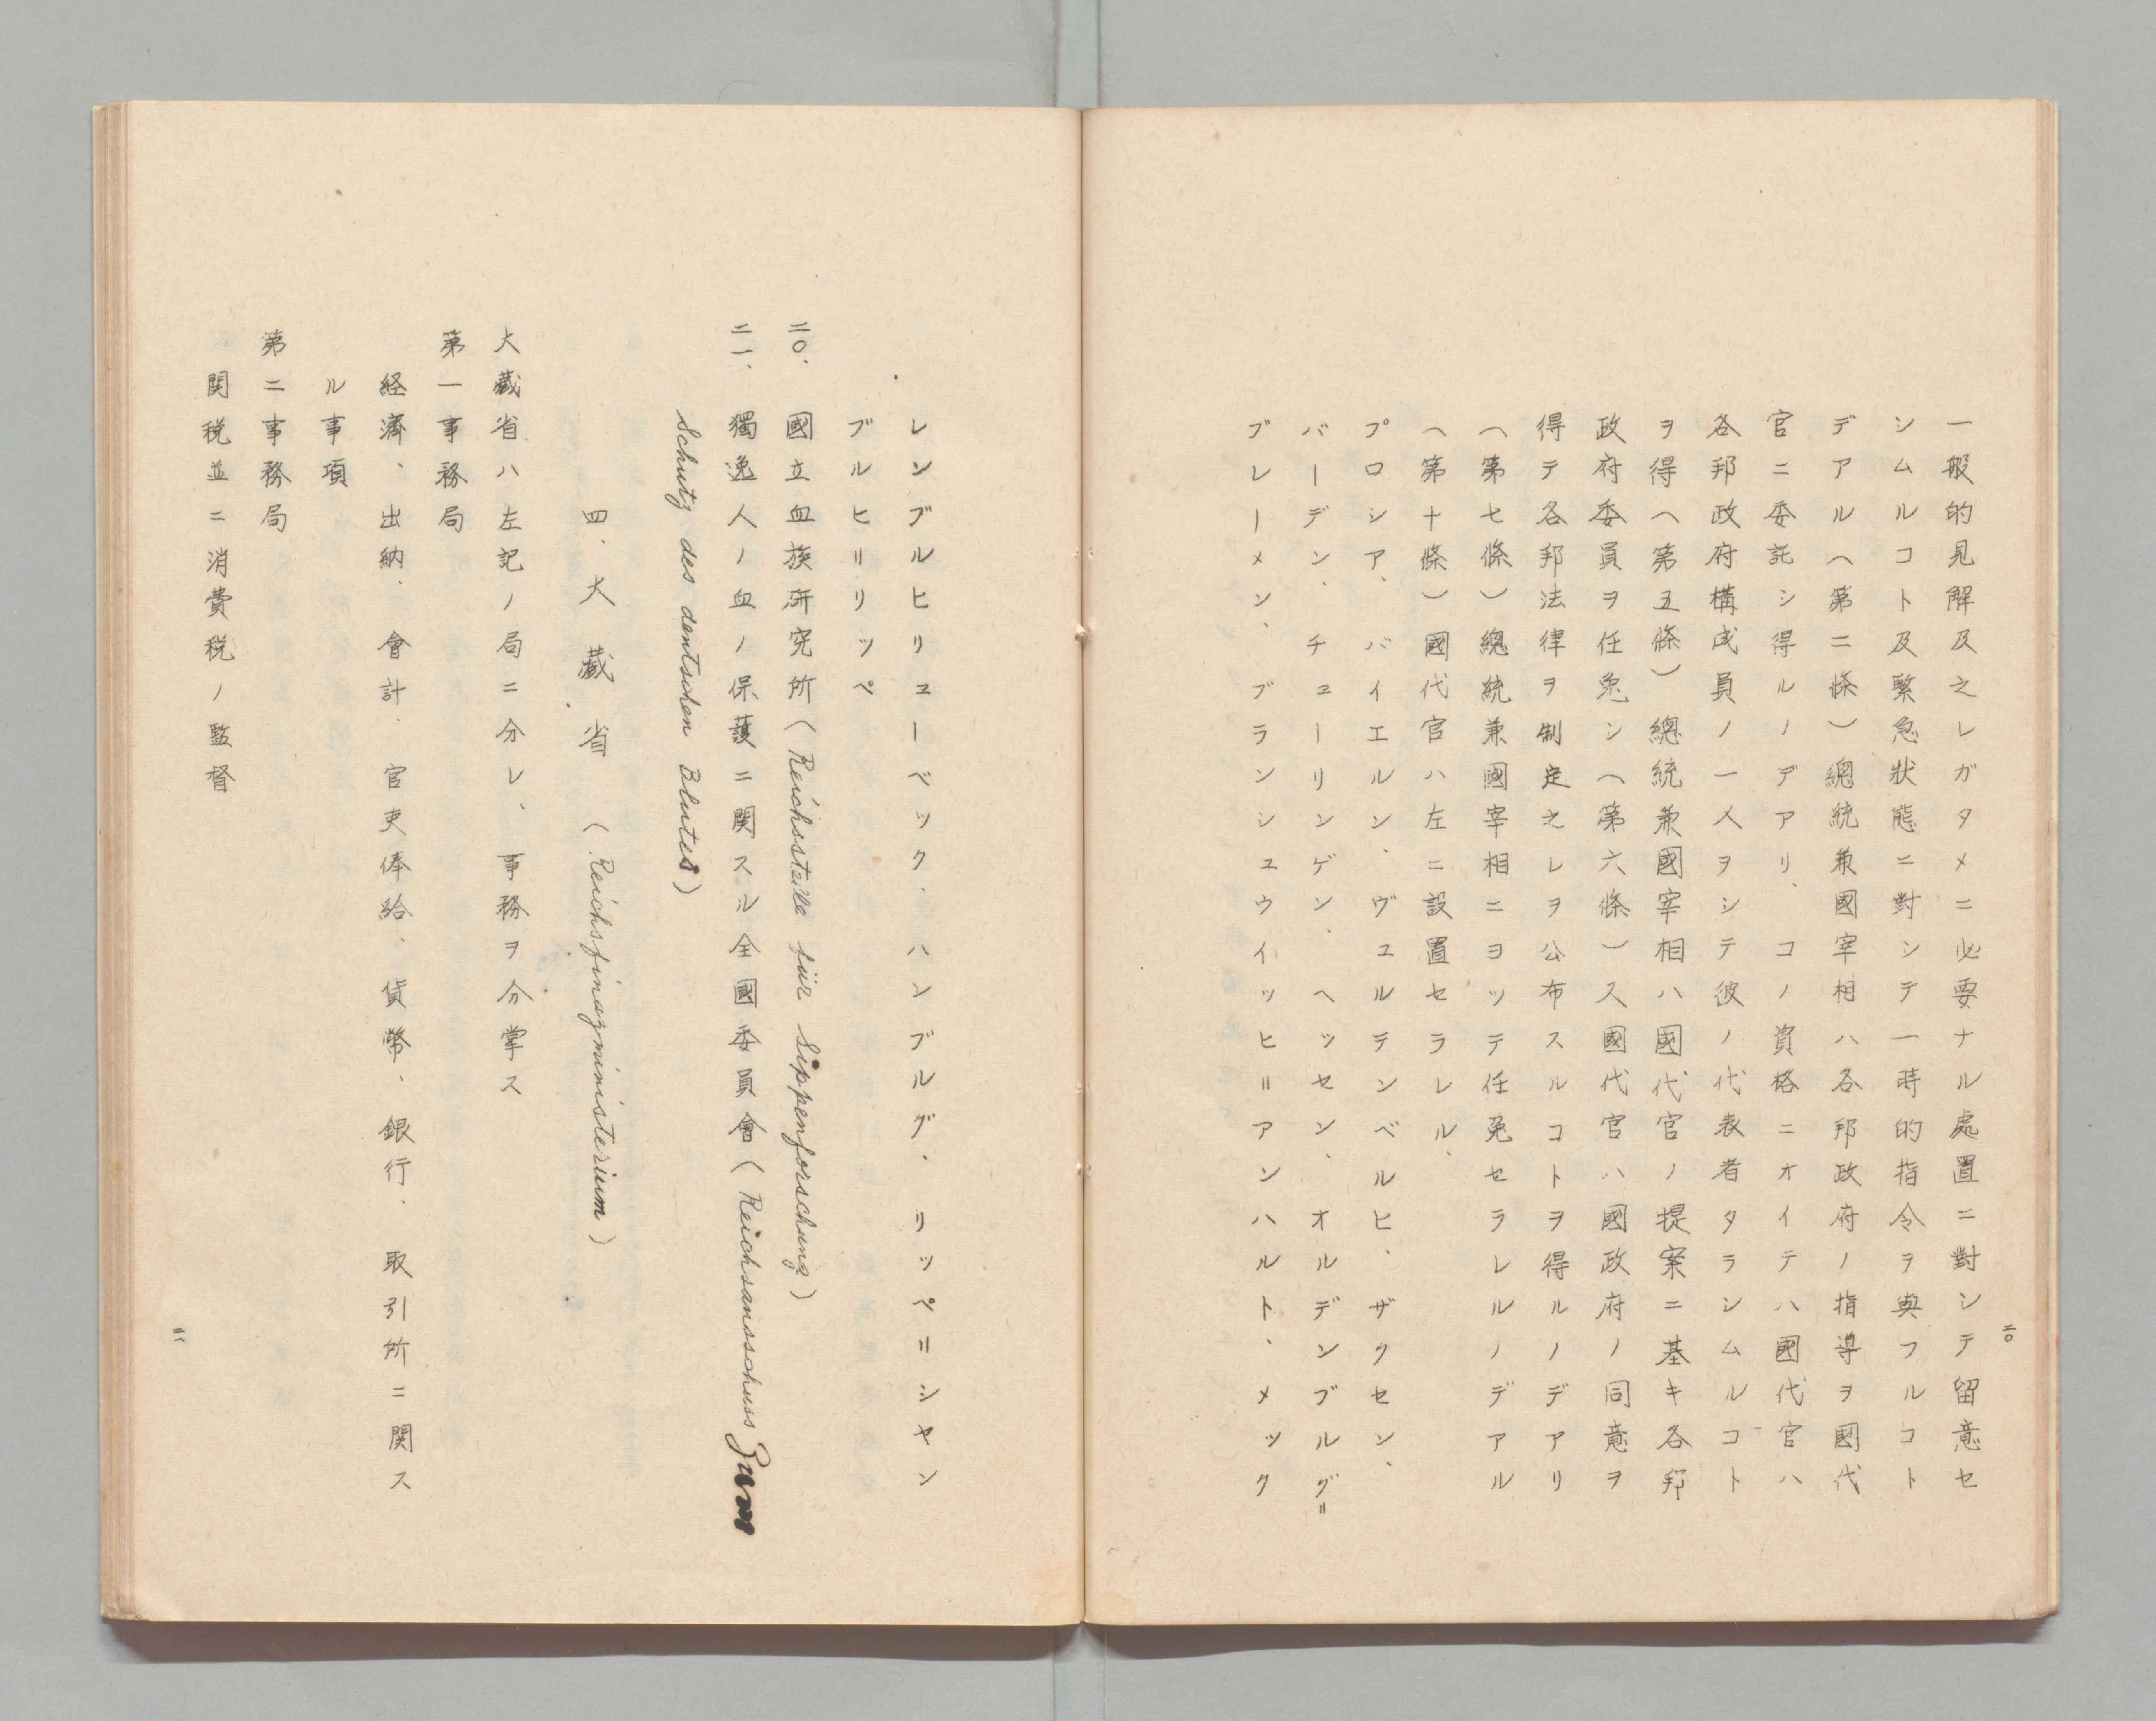 二〇
一般的見解及之レガタメニ必要ナル處置ニ對シテ留意セ
シムルコト及緊急狀態ニ對シテ一時的指令ヲ與フルコト
デアル（第二條）總統兼國宰相ハ各邦政府ノ指導ヲ國代
官ニ委託シ得ルノデアリ、コノ資格ニオイテハ國代官ハ
各邦政府構成員ノ一人ヲシテ彼ノ代表者タラシムルコト
ヲ得（第五條）總統兼國宰相ハ國代官ノ提案ニ基キ各邦
政府委員ヲ任免シ（第六條）ス國代官ハ國政府ノ同意ヲ
得テ各邦法律ヲ制定之レヲ公布スルコトヲ得ルノデアリ
（第七條）總統兼國宰相ニヨッテ任免セラレルノデアル
（第十條）國代官ハ左ニ設置セラレル、
プロシア、バイエルン、ヴュルテンベルヒ、ザクセン、
バーデン、チューリンゲン、ヘッセン、オルデンブルグ＝
ブレーメン、ブランシュウイッヒ＝アンハルト、メック
レンブルヒリューベック、ハンブルグ、リッペ＝シヤン
ブルヒ＝リッペ
二〇.國立血族研究所（Reichsstelle für Sippenforschung）
二一.獨逸人ノ血ノ保護ニ関スル全國委員會（Reichsansschuss Zum
Schutz des dentschen Blutes）
四.大藏省（Reichsfinazministerium）
大藏省ハ左記ノ局ニ分レ、事務ヲ分掌ス
第一事務局
経濟、出納、會計、官吏俸給、貨幣、銀行、取引所ニ関ス
ル事項
第二事務局
関税並ニ消費税ノ監督
二一